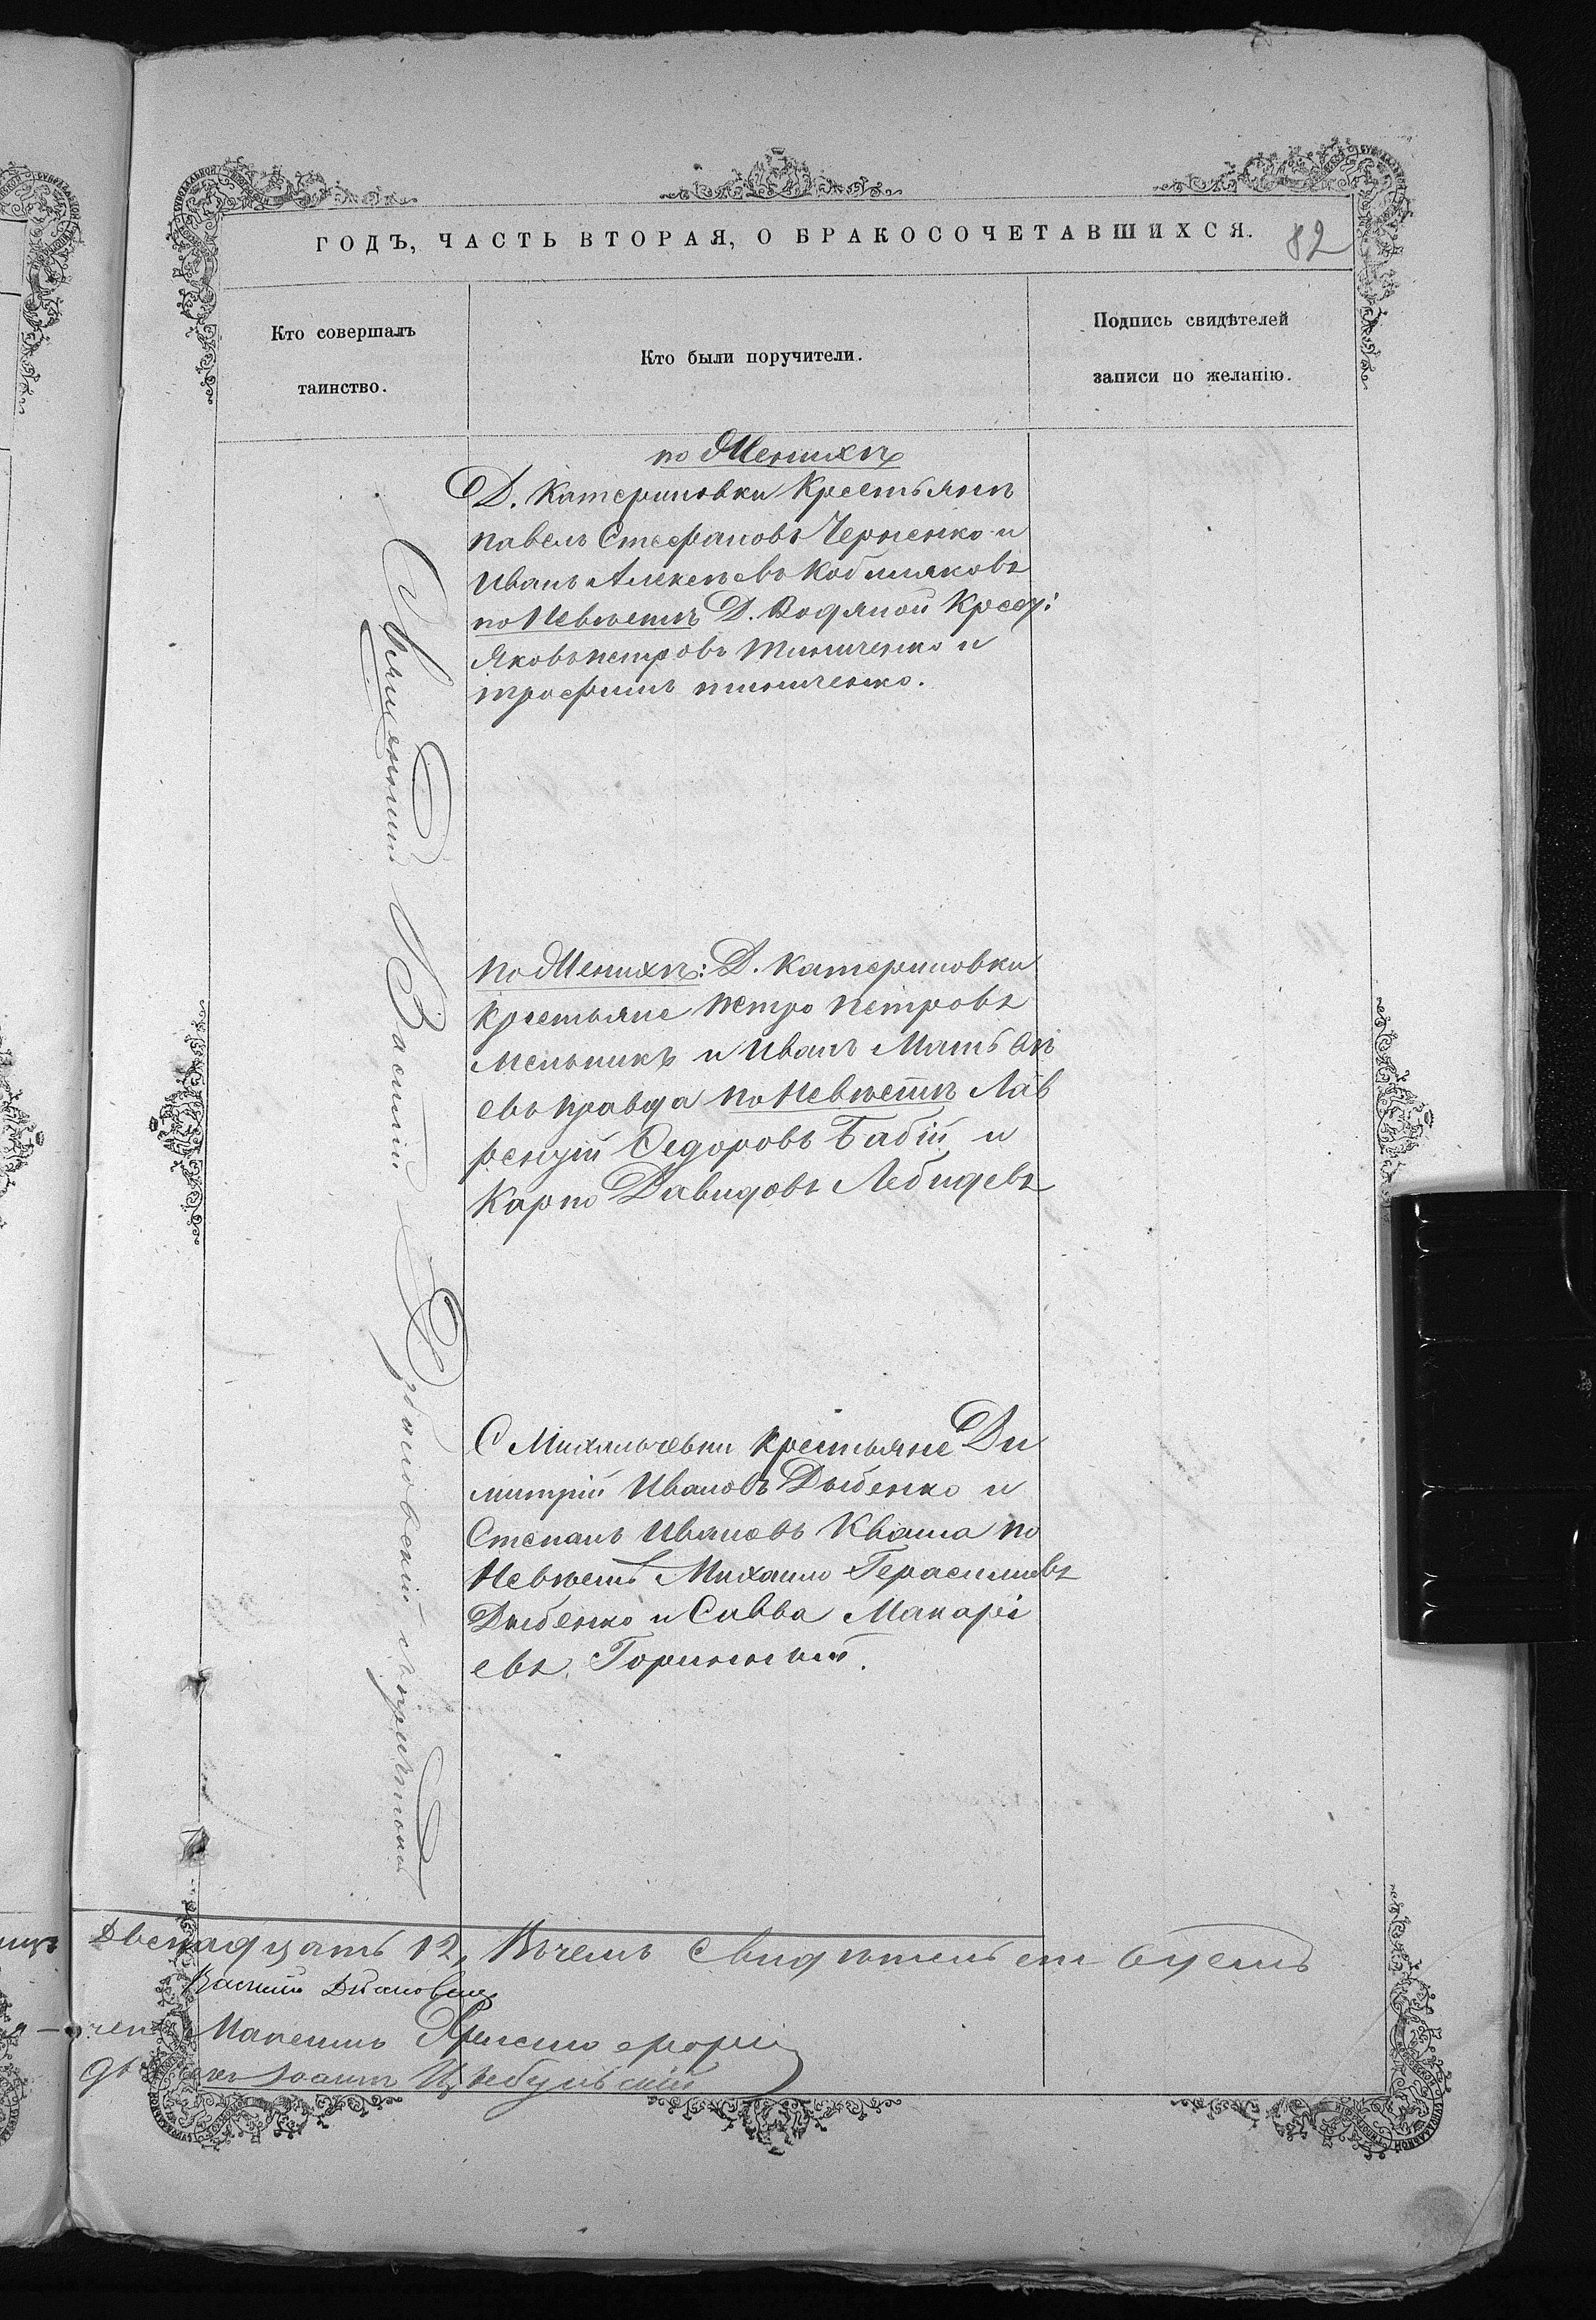 ГОДЪ, ЧАСТЬ ВТОРАЯ, О БРАКОСОЧЕТАВШИХСЯ. 82
Кто совершалъ
таинство.
Кто были поручители.
Подпись свидѣтелей
записи по желанію.
по Женихѣ
Д. Катериновки Крестьяне
Павелъ Стефановъ Черненко и
Иванъ Алексѣевъ Кобиляковъ
по Невѣстѣ Д. Водяной Крест:
Яковъ Петровъ Тимченко и
Трофимъ Тимченко.
по Женихѣ: Д. Катериновки
крестьяне Петро Петровъ
Мельникъ и Иванъ Матѳ
евъ Правда по Невѣстѣ Лав
рентій Ѳедоровъ Бабій и
Карпо Давидовъ Лебидевъ
С Михальчевки крестьяне Ди
митрій Ивановъ Дыбенко и
Степанъ Ивановъ Кваша по
Невѣстѣ Михаило Герасимовъ
Дыбенко и Савва Макарі
евъ
Священникъ Василій
Двенадцать 12, Въ чемъ свидѣтельствуемъ
Василій
Іоаннъ